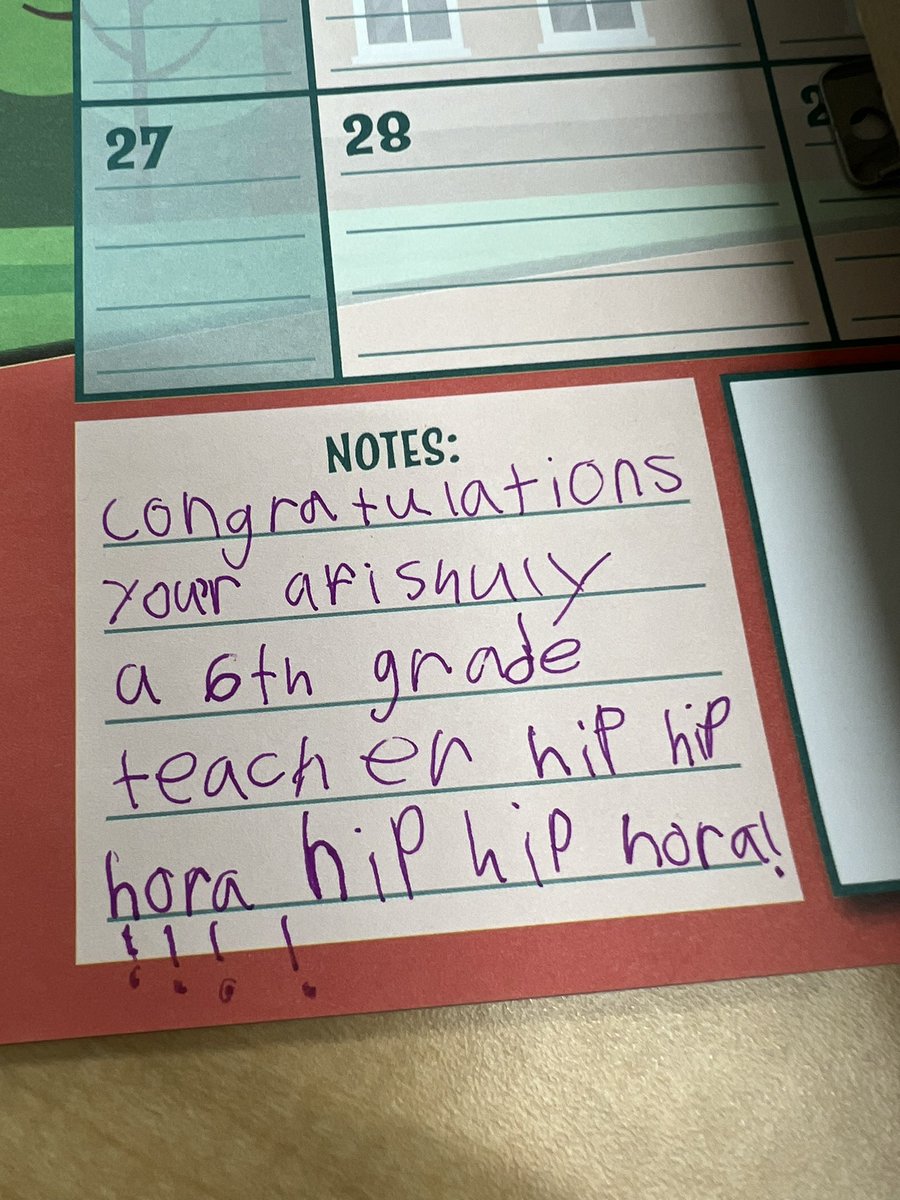 27
28
2
NOTES:
congratulations
your arishuly
a 6th grade
teacher hip hip
hora hip hip hora!
! ! ! !